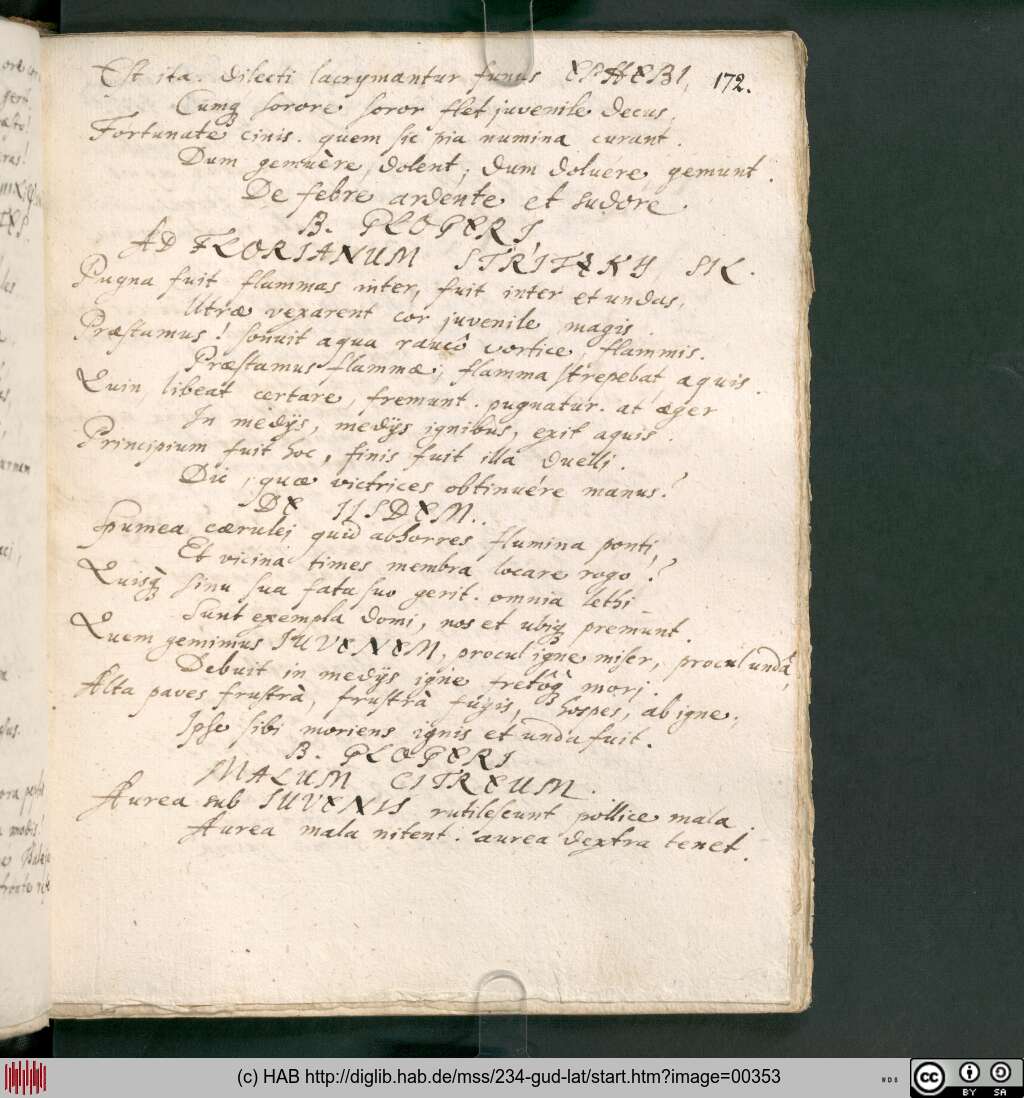 Est ita. dilecti lacrymantur funus EPHEBI, 172.
Cumq; sorore soror flet juvenile decus.
Fortunate cinis. quem sic pia numina curant.
Dum gemuère, dolent, dum doluére, gemunt.
De febre ardente et sudore.
B. GLOGERI,
AD FLORIANUM STRITZKY SIL.
Pugna fuit flammas inter, fuit inter et undas,
Utræ vexarent cor juvenile magis.
Præstamus! sonuit aqua raucô vortice, flammis.
Præstamus flammæ, flamma strepebat aquis.
Quin, libeat certare, fremunt. pugnatur. at æger
In medijs, medijs ignibus, exit aquis.
Principium fuit hoc, finis fuit illa duelli.
Dic, quæ victrices obtinuére manus?
DE IISDEM.
Spumea cærulej quid abhorres flumina ponti,
Et vicina times membra locare rogo?
Quisq; sinu sua fata suo gerit. omnia lethi
Sunt exempla domi, nos et ubiq; premunt.
Quem gemimus JUVENEM, procul igne miser, procul undâ,
Debuit in medijs igne fretôq; morj.
Alta paves frustrà, frustrà fugis, hospes, ab igne;
Ipse sibi moriens ignis et unda fuit.
B. GLOGERI
MALUM CITREUM.
Aurea sub JUVENIS rutilescunt pollice mala.
Aurea mala nitent: aurea dextra tenet.
(c) HAB http://diglib.hab.de/mss/234-gud-lat/start.htm?image=00353
cc BY SA